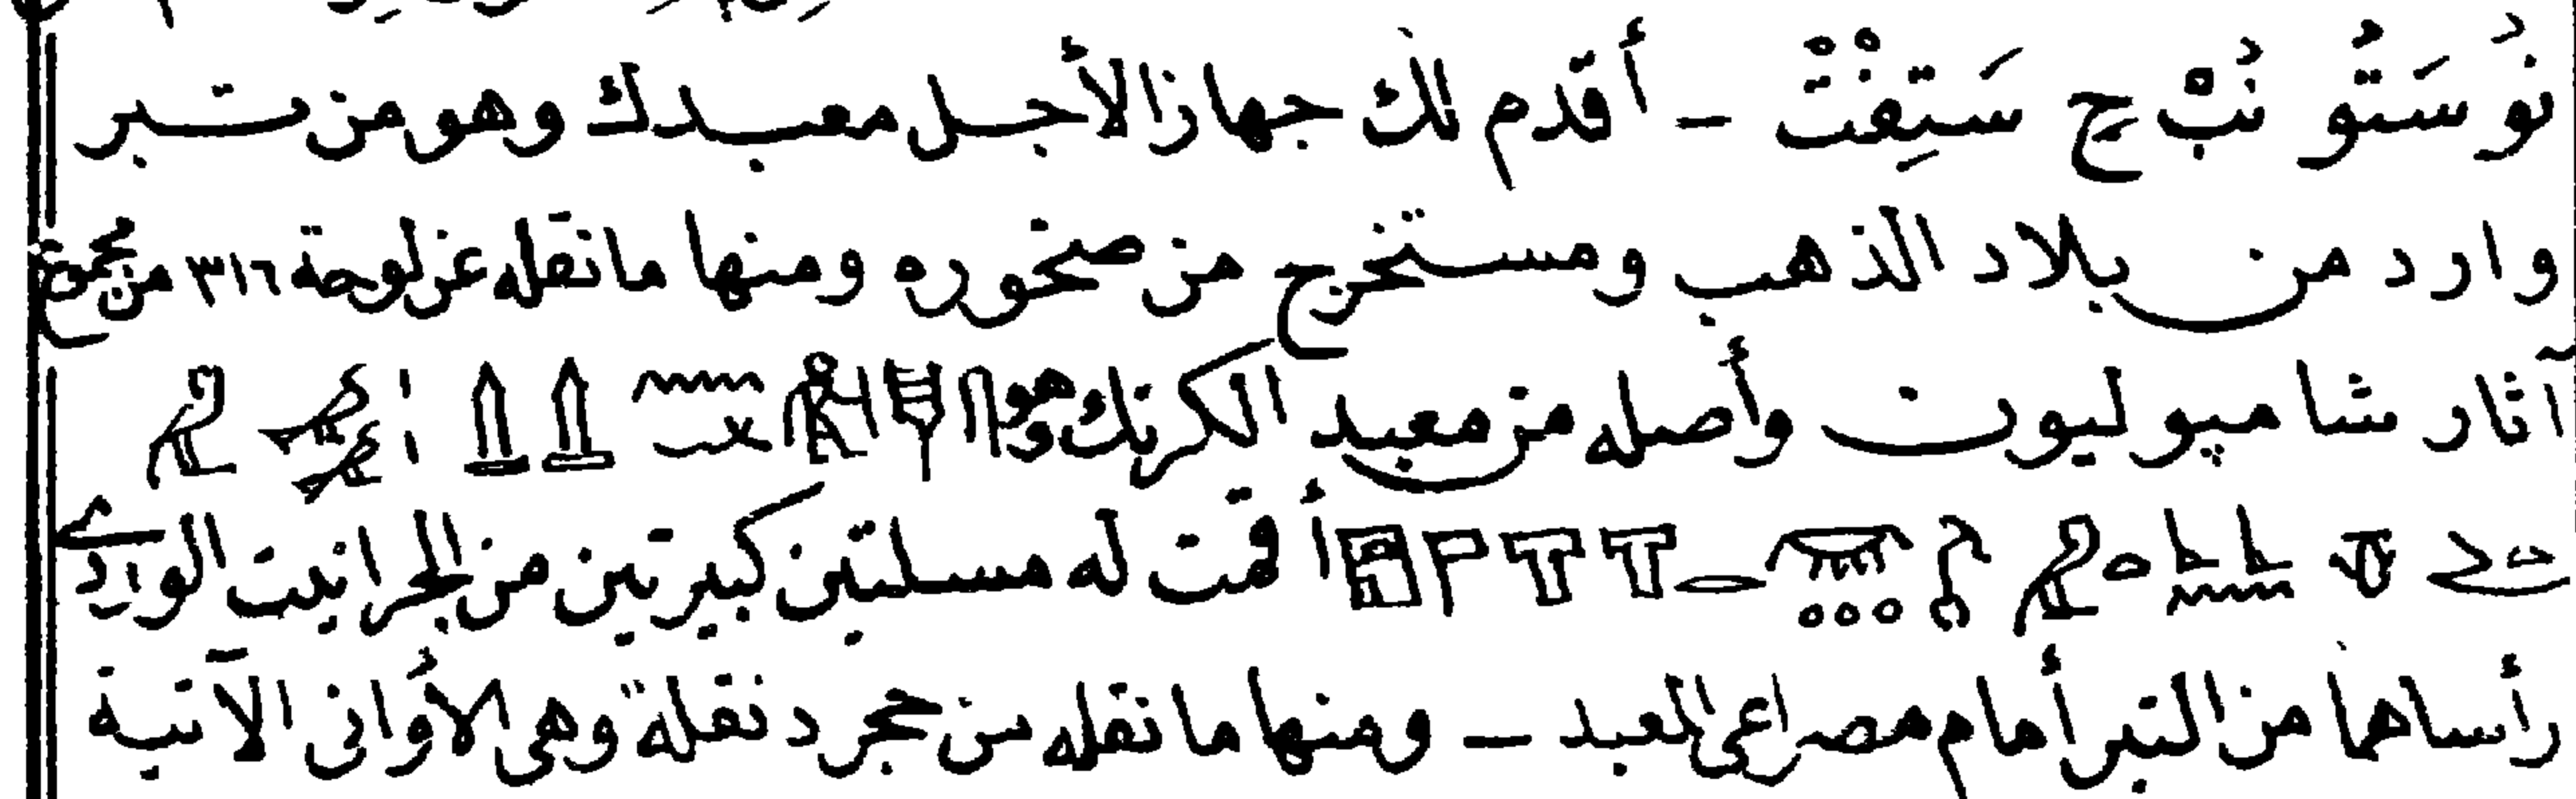 نُو سَتُو نُبْ حِ سَتِفْتْ - أقدم لك جهازا لأجل معبدك وهو من تبر
وارد من بلاد الذهب ومستخرج من صخوره ومنها ما نقله عن لوحة ٣١٦ من مجموع
آثار شامپوليون وأصله من معبد الكرنك وهو
أقمت له مسلتين كبيرتين من الجرانيت الوردى
رأساهما من التبر أمام مصراعى المعبد - ومنها ما نقله من حجر دنقلة وهى الأوانى الآتية